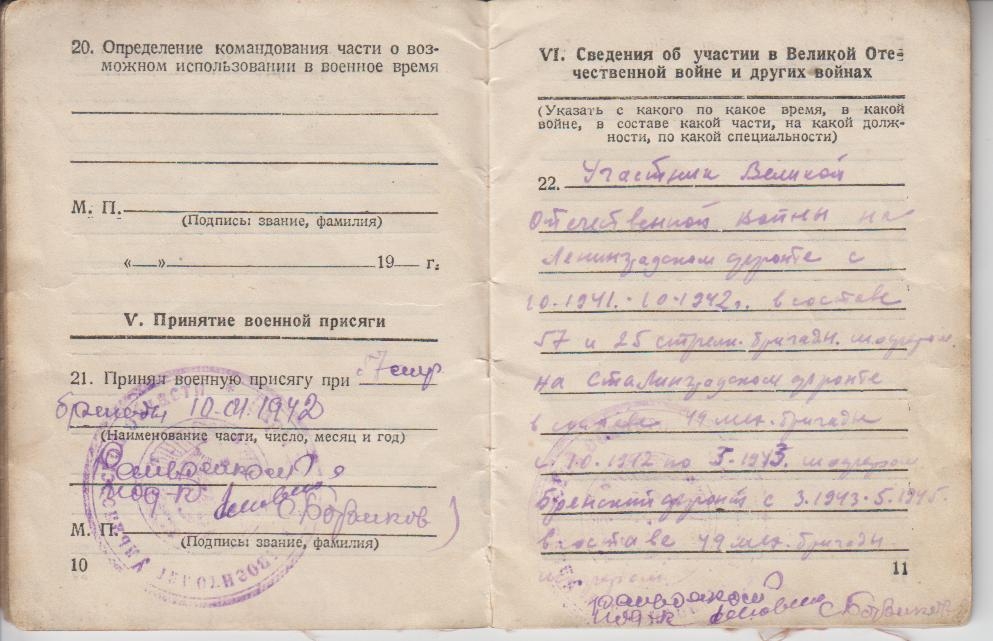 20. Определение командования части о воз-
можном использовании в военное время
М. П.
(Подпись: звание, фамилия)
«—»             19— г.
V. Принятие военной присяги
21. Принял военную присягу при 57 стр
бригаде, 10.01.1942
(Наименование части, число, месяц и год)
М. П.
(Подпись: звание, фамилия)
10
VI. Сведения об участии в Великой Оте-
чественной войне и других войнах
(Указать с какого по какое время, в какой
войне, в составе какой части, на какой долж-
ности, по какой специальности)
22. Участник Великой
Отечественной войны на
Ленинградском фронте с
10.1941. 10.1942г. в составе
57 и 25 стрелк. бригады. шофером.
на Сталинградском фронте
в составе 49 мех. бригады
с 10.1942 по 3.1943. шофером
Брянский фронт с 3.1943.5.1945.
в составе 49 мех. бригады
шофером.
11